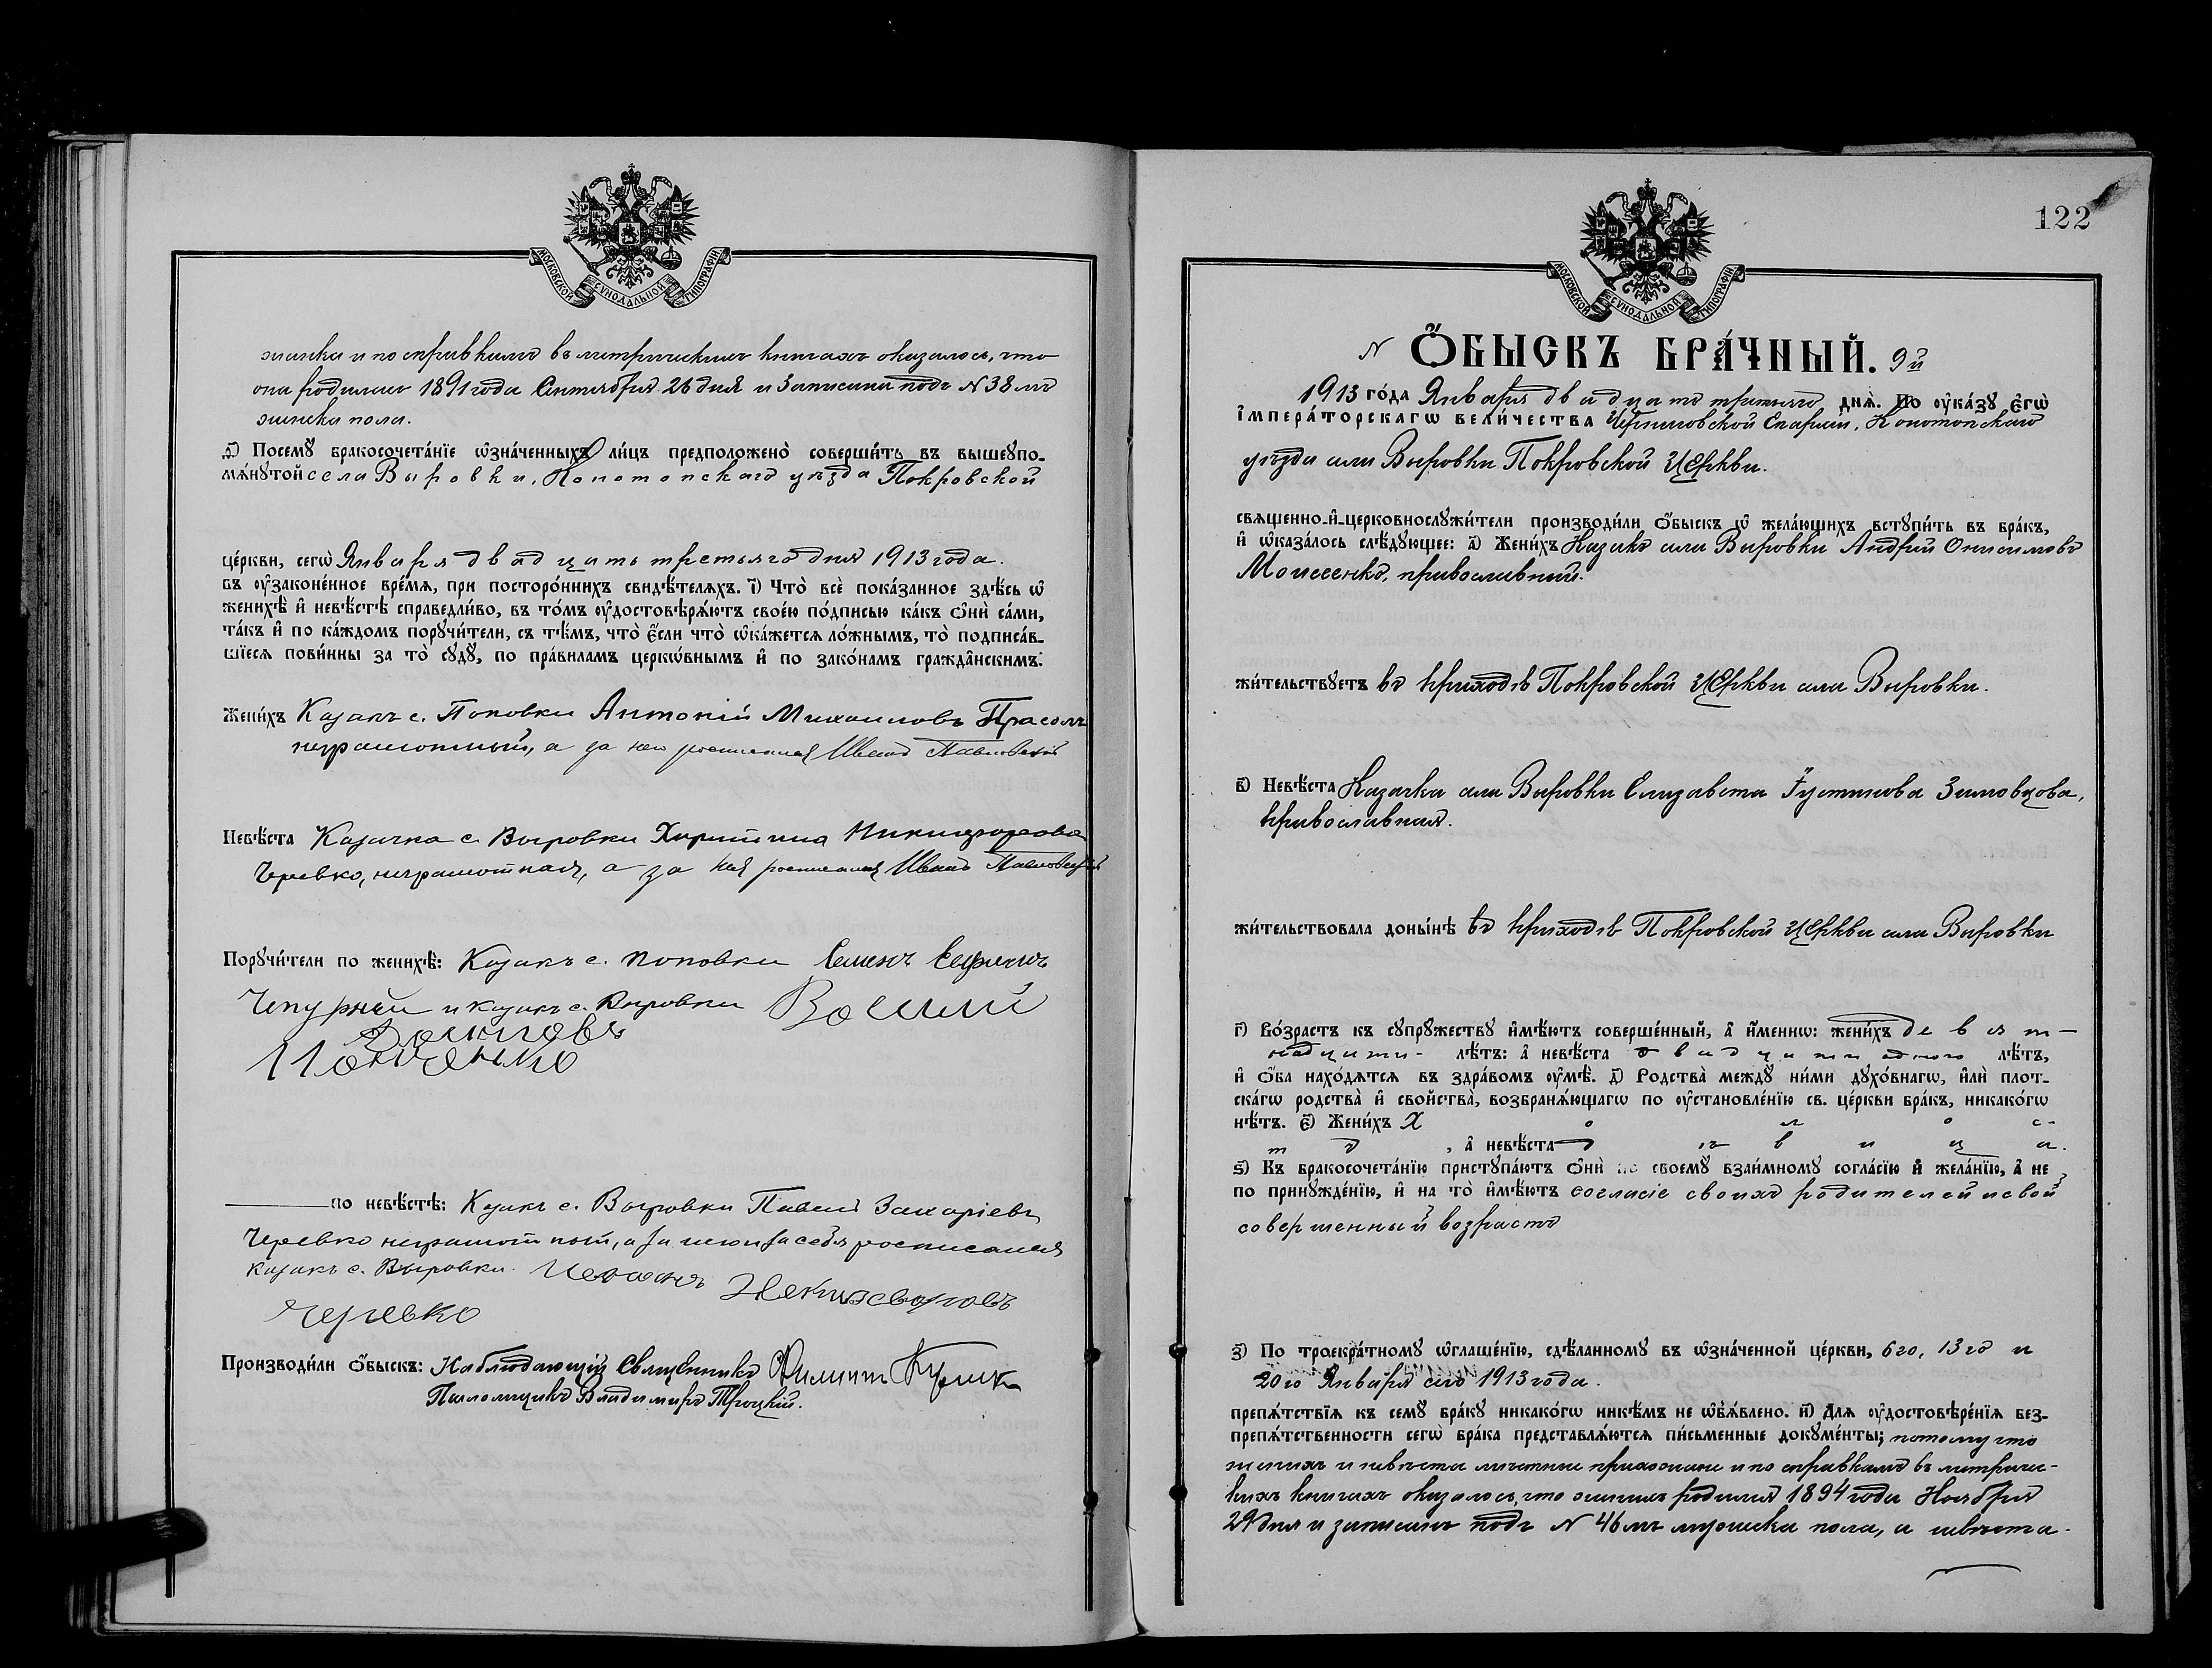 МОСКОВСКОЙ СѴНОДАЛЬНОЙ ТИПОГРАФІИ
женска и по справкамъ въ метрическихъ книгахъ оказалось, что
она родилась 1891 года Сентября 26 дня и записана подъ N 38 мъ
женска пола.
Посемꙋ бракосочета́нїе ѡ҆зна́ченныхъ ли́цъ предположено̀ соверши́ть въ вышеꙋпо-
мѧ́нꙋтой села Выровки, Конотопскаго уѣзда Покровской
це́ркви, сегѡ̀ Января двадцать третьяго дня 1913 года.
въ ᲂу҆зако́ненное вре́мѧ, при посторо́ннихъ свидѣ́телѧхъ. і҃) Что̀ всѐ пока́занное здѣ́сь ѡ҆
женихѣ̀ и҆ невѣ́стѣ справедли́во, въ то́мъ ᲂу҆достовѣрѧ́ютъ свое́ю по́дписью ка́къ ѻ҆нѝ са́ми,
та́къ и҆ по ка́ждомъ порꙋчи́тели, съ тѣ́мъ, что̀ є҆́сли что̀ ѡ҆ка́жетсѧ ло́жнымъ, то̀ подписа́в-
шїесѧ пови́нны за то̀ сꙋдꙋ̀, по пра́виламъ церко́внымъ и҆ по зако́намъ гражда̑нскимъ.
Жени́хъ Казакъ с. Поповки Антоній Михаиловъ Прасолъ
неграмотный, а за него росписался Иванъ Павловскій
Невѣ́ста Казачка с. Выровки Христина Никифорова
Черевко, неграмотная, а за нея росписался Иванъ Павловскій
Порꙋчи́тели по женихѣ̀: Казакъ с. Поповки Семенъ Ефимовъ
Чепурный и казакъ с. Выровки

по невѣ́стѣ: Казакъ с. Выровки Павелъ Захаріевъ
Черевко неграмотный, а за него и за себя росписался
казакъ с. Выровки Никифоровъ
Черевко
Производи́ли ѻ҆́быскъ: Наблюдающій Священникъ Филиппъ
Псаломщикъ Владимиръ Троцкій.
122
МОСКОВСКОЙ СѴНОДАЛЬНОЙ ТИПОГРАФІИ
N Ѻ҆́БЫСКЪ БРА́ЧНЫЙ. 9й
1913 го́да Января двадцать третьяго днѧ̀. По ᲂу҆ка́зꙋ є҆гѡ̀
і҆мпера́торскагѡ вели́чества Черниговской Епархіи, Конотопскаго
уѣзда села Выровки Покровской Церкви.
свѧщенно-и҆-церковнослꙋжи́тели производи́ли ѻ҆́быскъ ѡ҆ жела́ющихъ встꙋпи́ть въ бра́къ,
и҆ ѡ҆каза́лось слѣ́дꙋющее: а҃) Жени́хъ Казакъ села Выровки Андрей Онисимовъ
Моисеенко, православный.
жи́тельствꙋетъ въ приходѣ Покровской Церкви села Выровки.
в҃) Невѣ́ста Казачка села Выровки Елизавета Іустинова Зимовцова,
православная.
жи́тельствовала доны́нѣ въ приходѣ Покровской Церкви села Выровки
г҃) Во́зрастъ къ сꙋпрꙋ́жествꙋ и҆мѣ́ютъ соверше́нный, а҆ и҆́меннѡ: жени́хъ девят-
надцати лѣ́тъ: а҆ невѣ́ста двадцати одного лѣ́тъ,
и҆ ѻ҆́ба нахо́дѧтсѧ въ здра́вомъ ᲂу҆мѣ̀. д҃) Родства̀ междꙋ̀ ни́ми дꙋхо́внагѡ, и҆лѝ плот-
ска́гѡ родства̀ и҆ сво́йства̀, возбранѧ́ющагѡ по ᲂу҆становле́нїю св. це́ркви бра́къ, никако́гѡ
нѣ́тъ. є҃) Жени́хъ х о л о с-
т ъ, а҆ невѣ́ста д ѣ в и ц а.
ѕ҃) Къ бракосочета́нїю пристꙋпа́ютъ ѻ҆нѝ по своемꙋ̀ взаи́мномꙋ согла́сїю и҆ жела́нїю, а҆ не
по принꙋжде́нїю, и҆ на то̀ и҆мѣ́ютъ согласіе своихъ родителей и свой
совершенный возрастъ
з҃) По троекра́тномꙋ ѡ҆глаше́нїю, сдѣ́ланномꙋ въ ѡ҆зна́ченной це́ркви, 6го, 13го и
20го Января сего 1913 года.
препѧ́тствїѧ къ семꙋ̀ бра́кꙋ никако́гѡ никѣ́мъ не ѡ҆б̾ѧ́влено. и҃) Длѧ ᲂу҆достовѣре́нїѧ без-
препѧ́тственности сегѡ̀ бра́ка представлѧ́ютсѧ пи́сьменные докꙋме́нты; потому что
женихъ и невѣста мѣстные прихожане и по справкамъ въ метричес-
кихъ книгахъ оказалось, что женихъ родился 1894 года Ноября
29 дня и записанъ подъ N 46 мъ мужска пола, а невѣста